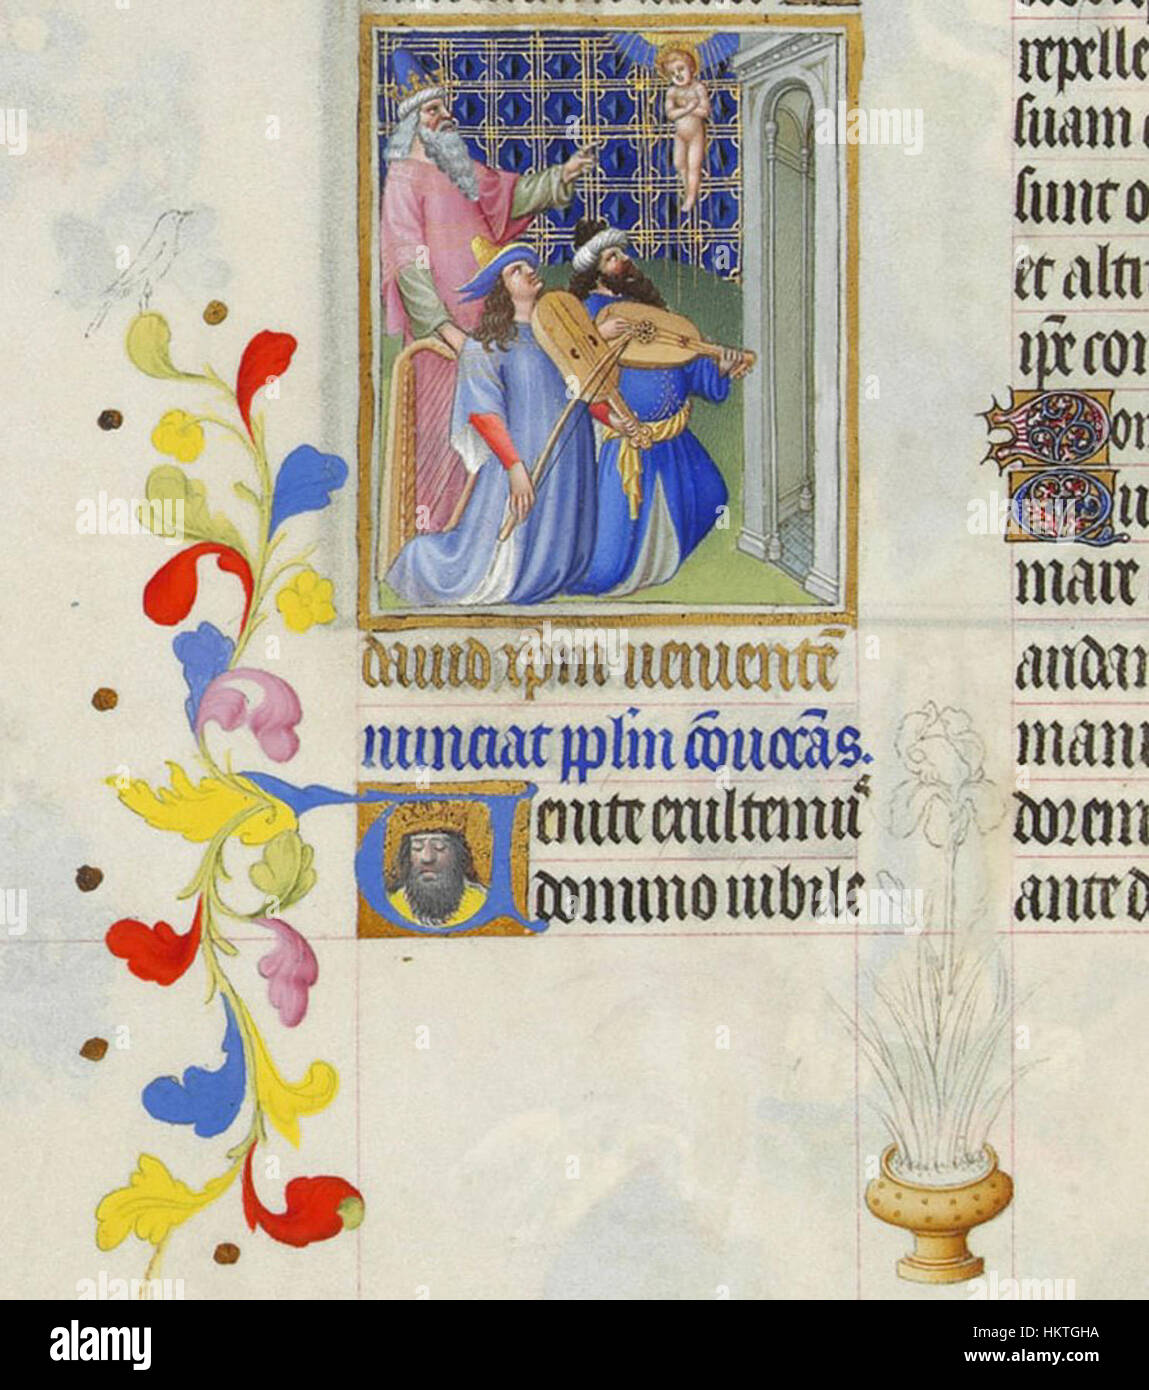 dauid xp̄m uenientē
nunciat pplm̄ cōuocās.
Uenite exultemus
domino iubile
repelle
suam
sunt o
et alti
ip̄e con
mare
aridam
manu
dorem
ante d
alamy
alamy
Image ID: HKTGHA
www.alamy.com